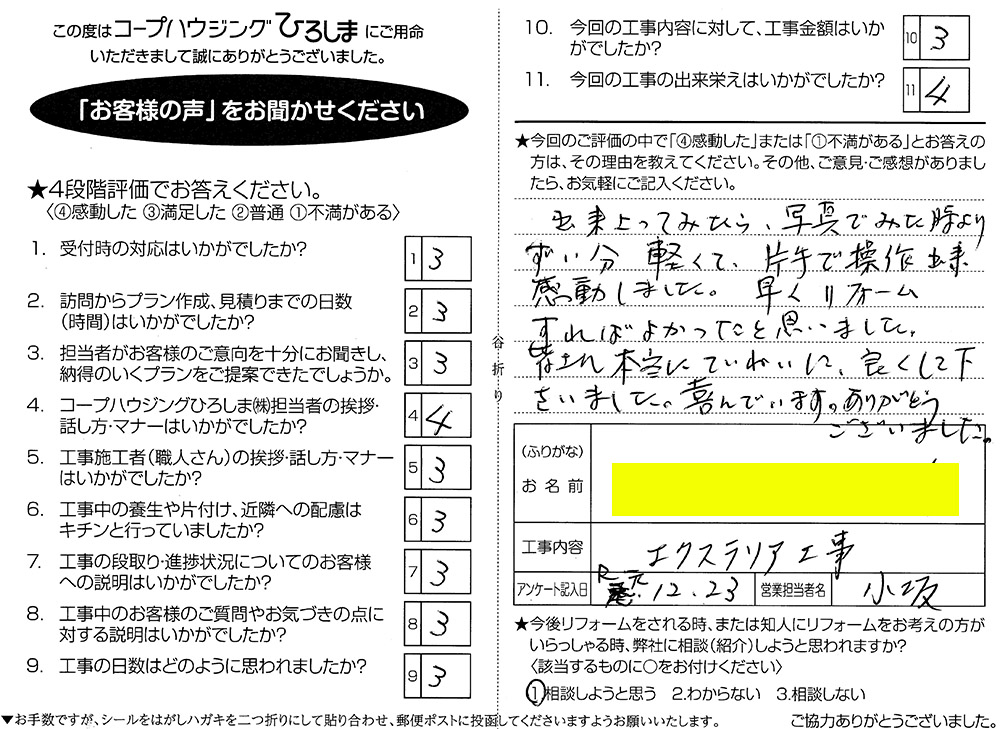 この度はコープハウジングひろしまにご用命
いただきまして誠にありがとうございました。
「お客様の声」をお聞かせください
★4段階評価でお答えください。
〈④感動した ③満足した ②普通 ①不満がある〉
1. 受付時の対応はいかがでしたか?
1 3
2. 訪問からプラン作成、見積りまでの日数
（時間）はいかがでしたか?
2 3
3. 担当者がお客様のご意向を十分にお聞きし、
納得のいくプランをご提案できたでしょうか。
3 3
4. コープハウジングひろしま㈱担当者の挨拶・
話し方・マナーはいかがでしたか?
4 4
5. 工事施工者（職人さん）の挨拶・話し方・マナー
はいかがでしたか?
5 3
6. 工事中の養生や片付け、近隣への配慮は
キチンと行っていましたか?
6 3
7. 工事の段取り・進捗状況についてのお客様
への説明はいかがでしたか?
7 3
8. 工事中のお客様のご質問やお気づきの点に
対する説明はいかがでしたか?
8 3
9. 工事の日数はどのように思われましたか?
9 3
谷折り
10. 今回の工事内容に対して、工事金額はいか
がでしたか?
10 3
11. 今回の工事の出来栄えはいかがでしたか?
11 4
★今回のご評価の中で「④感動した」または「①不満がある」とお答えの
方は、その理由を教えてください。その他、ご意見・ご感想がありまし
たら、お気軽にご記入ください。
出来上ってみたら、写真でみた時より
ずい分 軽くて、片手で操作出来
感動しました。 早くリフォーム
すればよかったと思いました。
本当にていねいに、良くして下
さいました。喜んでいます。ありがとう
ございました。
（ふりがな）
お名前
工事内容
エクステリア工事
アンケート記入日
R元.12.23
営業担当者名
小坂
★今後リフォームをされる時、または知人にリフォームをお考えの方が
いらっしゃる時、弊社に相談（紹介）しようと思われますか?
〈該当するものに○をお付けください〉
1.相談しようと思う 2.わからない 3.相談しない
▼お手数ですが、シールをはがしハガキを二つ折りにして貼り合わせ、郵便ポストに投函してくださいますようお願いいたします。
ご協力ありがとうございました。